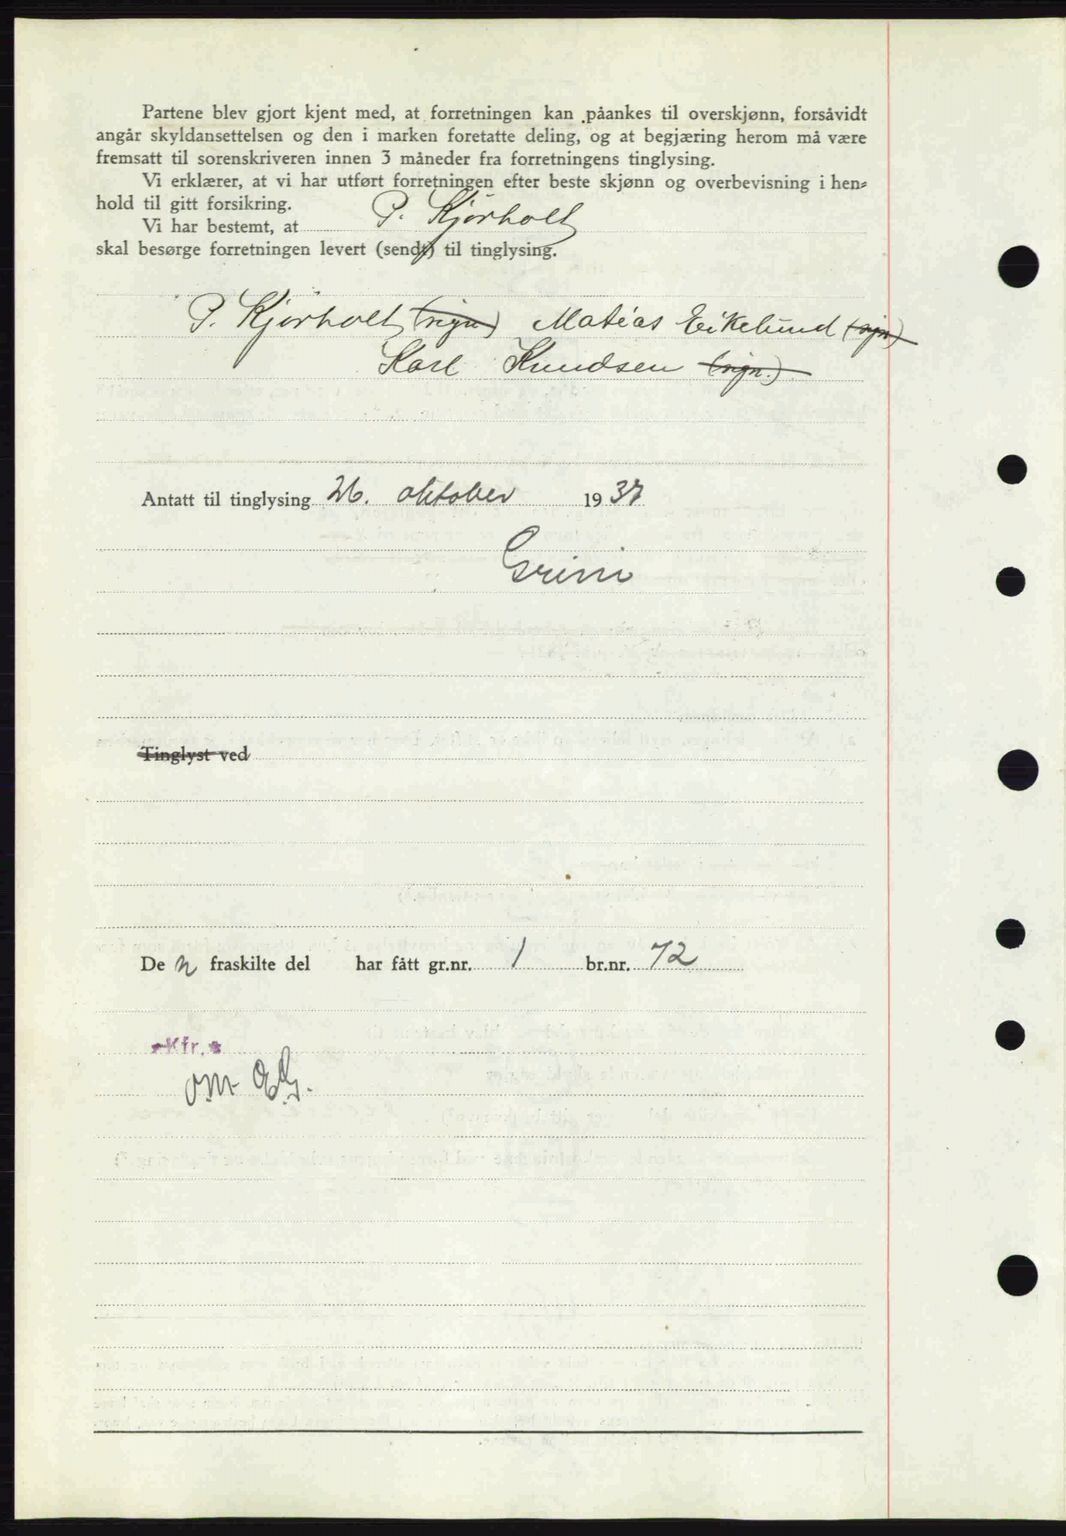 Partene blev gjort kjent med, at forretningen kan påankes til overskjønn, forsåvidt
angår skyldansettelsen og den i marken foretatte deling, og at begjæring herom må være
fremsatt til sorenskriveren innen 3 måneder fra forretningens tinglysing.
Vi erklærer, at vi har utført forretningen efter beste skjønn og overbevisning i hen-
hold til gitt forsikring.
Vi har bestemt, at P. Kjørholt
skal besørge forretningen levert (sendt) til tinglysing.
P. Kjørholt (sign) Matias Eikelund (sign)
Karl Knudsen (sign.)
Antatt til tinglysing 26. oktober 1937
Grini
Tinglyst ved
De n fraskilte del har fått gr.nr. 1 br.nr. 72
Kfr.
OM EG.